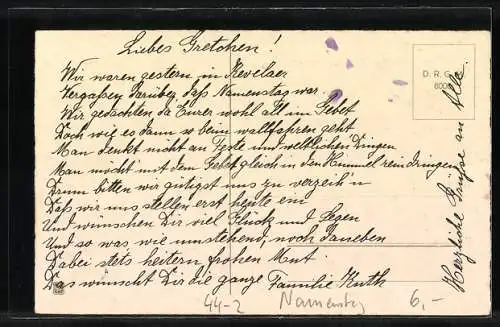 Liebes Gretchen!
Wir waren gestern in Kevelaer
Vergaßen darüber, daß Namenstag war.
Wir gedachten da Eurer wohl all im Gebet
Doch wie es dann so beim wallfahren geht
Man denkt nicht an Feste und weltlichen Dingen
Man möcht mit dem Gebet gleich in den Himmel rein dringen
Drum bitten wir gütigst uns zu verzeih'n
Daß wir uns stellen erst heute ein
Und wünschen Dir viel Glück und Segen
Und so was wie umstehend, noch daneben
Dabei stets heitern frohen Mut.
Das wünscht Dir die ganze Familie Kuth
Herzliche Grüße an Alle.
D. R. G.
44-2 Namenstag 6,-